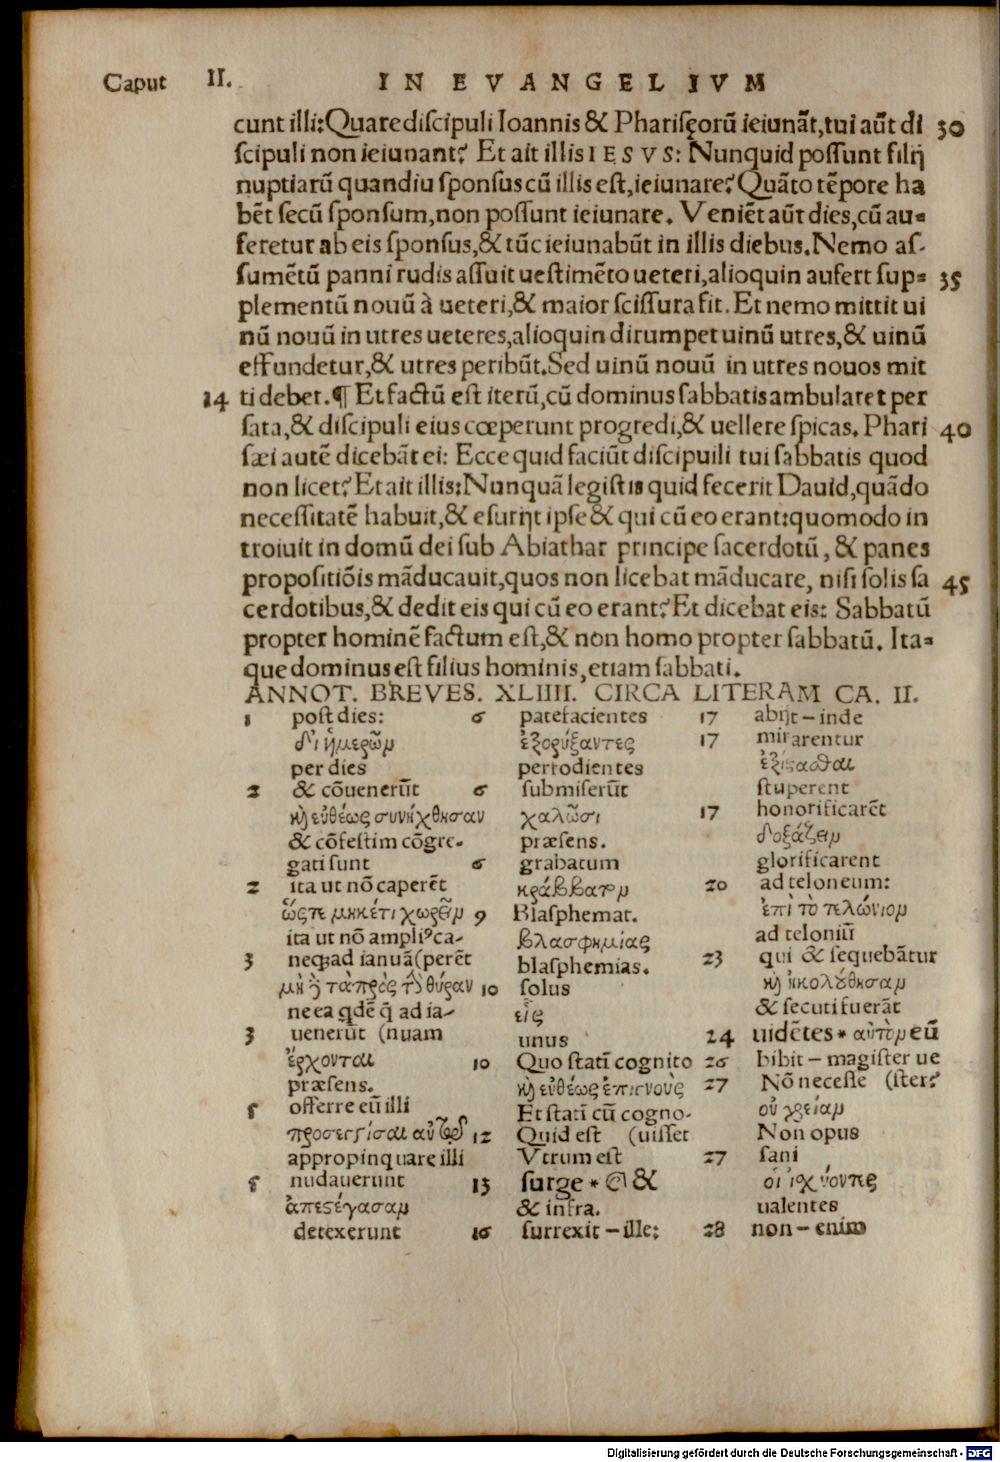 Caput II. IN EVANGELIVM
cunt illi: Quare discipuli Ioannis & Pharisęorū ieiunāt, tui aūt di 30
scipuli non ieiunant? Et ait illis IESVS: Nunquid possunt filij
nuptiarū quandiu sponsus cū illis est, ieiunare? Quāto tēpore ha
bēt secū sponsum, non possunt ieiunare. Veniēt aūt dies, cū au=
feretur ab eis sponsus, & tūc ieiunabūt in illis diebus. Nemo as-
sumētū panni rudis assuit uestimēto ueteri, alioquin aufert sup= 35
plementū nouū à ueteri, & maior scissura fit. Et nemo mittit ui
nū nouū in utres ueteres, alioquin dirumpet uinū utres, & uinū
effundetur, & utres peribūt. Sed uinū nouū in utres nouos mit
14 ti debet. ¶ Et factū est iterū, cū dominus sabbatis ambularet per
sata, & discipuli eius cœperunt progredi, & uellere spicas. Phari 40
sæi autē dicebāt ei: Ecce quid faciūt discipuili tui sabbatis quod
non licet? Et ait illis: Nunquā legistis quid fecerit Dauid, quādo
necessitatē habuit, & esurijt ipse & qui cū eo erant: quomodo in
troiuit in domū dei sub Abiathar principe sacerdotū, & panes
propositiōis māducauit, quos non licebat māducare, nisi solis sa 45
cerdotibus, & dedit eis qui cū eo erant? Et dicebat eis: Sabbatū
propter hominē factum est, & non homo propter sabbatū. Ita=
que dominus est filius hominis, etiam sabbati.
ANNOT. BREVES. XLIIII. CIRCA LITERAM CA. II.
1 post dies:
δι ἡμερῶν
per dies
2 & cōuenerūt
καὶ εὐθέως συνήχθησαν
& cōfestim cōgre-
gati sunt
2 ita ut nō caperēt
ὥστε μηκέτι χωρεῖν
ita ut nō ampliꝰ ca-
3 neqꝫ ad ianuā (perēt
μηδὲ τὰ πρὸς τὴν θύραν
ne ea qdē q̄ ad ia-
3 uenerūt (nuam
ἔρχονται
præsens.
5 offerre eū illi
προσεγγίσαι αὐτῷ
appropinquare illi
5 nudauerunt
ἀπεστέγασαν
detexerunt
6 patefacientes
ἐξορύξαντες
perfodientes
6 submiserūt
χαλῶσι
præsens.
6 grabatum
κράββατον
9 Blasphemat.
βλασφημίας
blasphemias.
10 solus
εἷς
unus
10 Quo statī cognito
καὶ εὐθέως ἐπιγνοὺς
Et statī cū cogno-
12 Quid est (uisset
Vtrum est
13 surge * & &
& infra.
16 surrexit – ille:
17 abijt – inde
17 mirarentur
ἐξίστασθαι
stuperent
17 honorificarēt
δοξάζειν
glorificarent
20 ad teloneum:
ἐπὶ τὸ τελώνιον
ad teloniū
23 qui & sequebātur
καὶ ἠκολούθησαν
& secuti fuerāt
24 uidētes * αὐτὸν eū
26 bibit – magister ue
27 Nō necesse (ster?
οὐ χρείαν
Non opus
27 sani
οἱ ἰσχύοντες
ualentes
28 non – enim
Digitalisierung gefördert durch die Deutsche Forschungsgemeinschaft - DFG